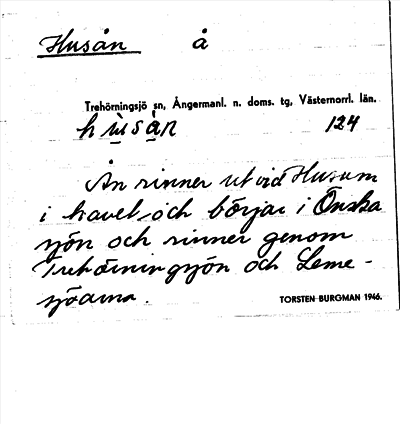 Husån å
Trehörningsjö sn, Ångermanl. n. doms. tg, Västernorrl. län.
hùsàn 124
Ån rinner ut vid Husum
i havet, och börjar i Önska
sjön och rinner genom
Trehörningsjön och Leme-
sjöarna.
TORSTEN BURGMAN 1946.